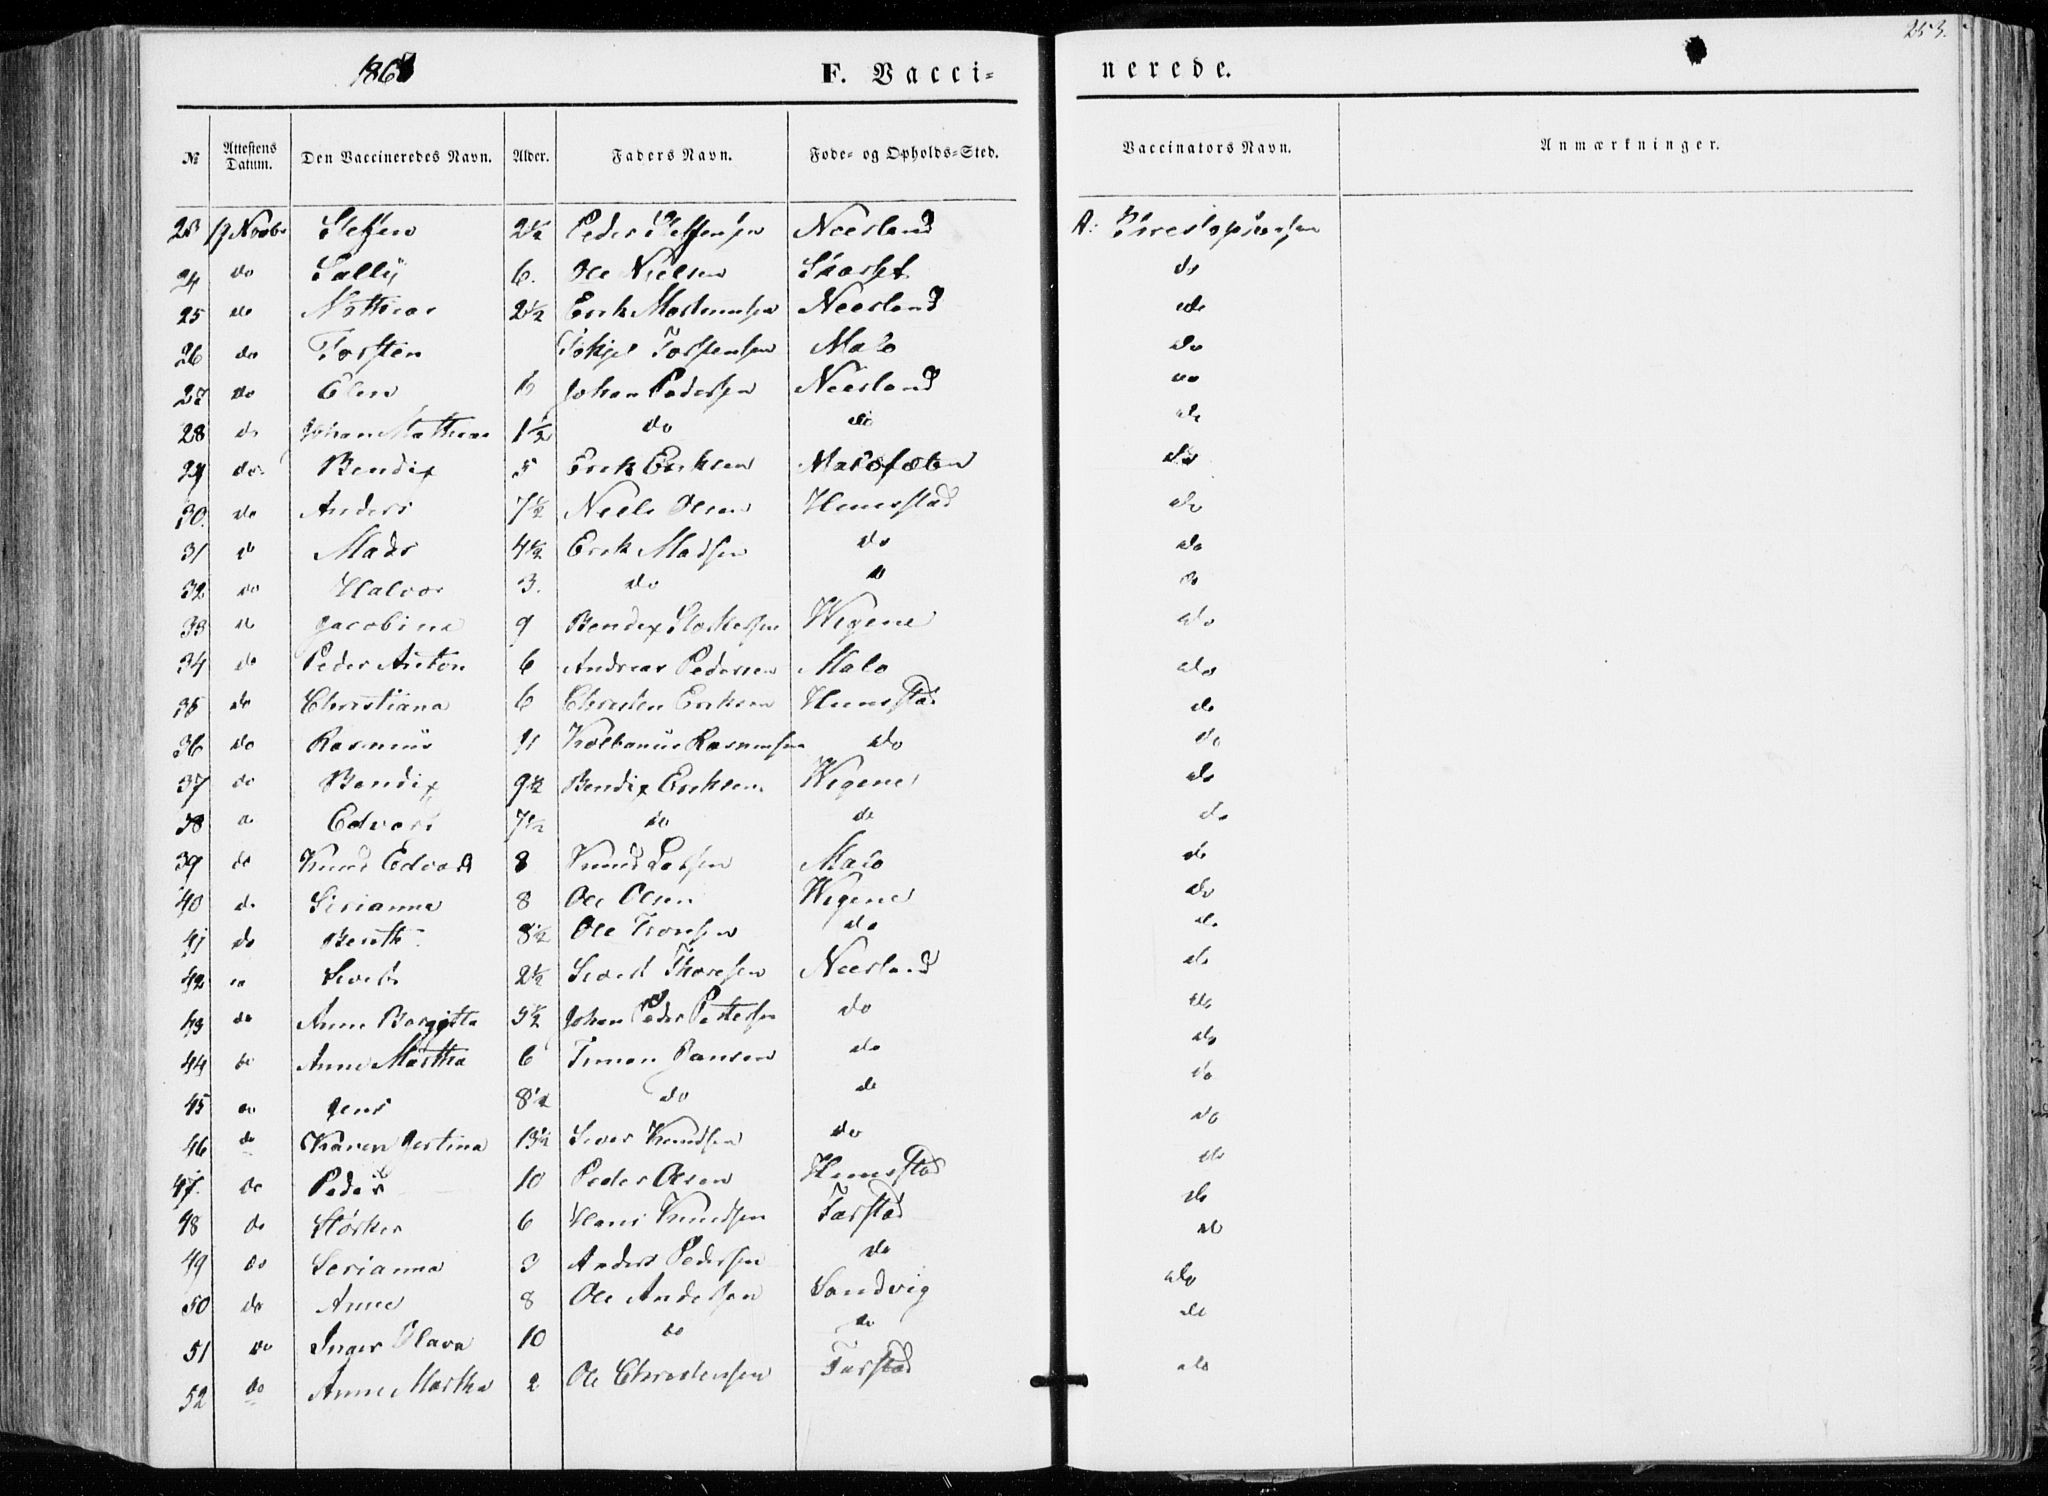 F. Vacci= nerede.
253.
№ Attestens Datum. Den Vaccineredes Navn. Alder. Faders Navn. Føde= og Opholds=Sted. Vaccinators Navn. Anmærkninger.
23 19 Novbr Steffen 2½ Peder Steffensen Neesland A:
24 do Sally 6. Ole Nielsen Skarset do
25 do Mathias 2½ Erik Mortensen Neesland do
26 do Torsten Torstensen Malo do
27 do Elen 6 Johan Pedersen Neesland do
28 do Johan Mathias 1½ do do do
29 do Bendix 5 Erik Eriksen do
30. do Anders 7½ Niels Olsen Hemstad do
31 do Mads 4½ Erik Madsen do do
32 do Halvor 3. do do do
33 do Jacobine 9 Bendix Wegene do
34 do Peder Anton 6 Andreas Pedersen Malo do
35 do Christiana 6 Christen Eriksen Hemstad do
36 do Rasmus 11 Kolbanus Rasmusen do do
37 do Bendix 9½ Bendix Eriksen Wegene do
38 do Edvard 7½ do do do
39 do Knud Edvard 8 Knud Malo do
40 do Sirianna 8 Ole Olsen Wegene do
41 do Benth 8½ Ole do do
42 do Sivert 2½ Sivert Thoresen Neesland do
43 do Anne Borgitta 5½ Johan Peder Petersen do do
44 do Anne Martha 6 Simon Jansen do do
45 do Jens 8½ do do do
46 do Karen Jestina 13½ Siver Knudsen do do
47. do Peder 10 Peder Olsen Hemstad do
48 do Størker 6 Hans Knudsen Farstad do
49 do Serianna 3 Anders Pedersen do do
50 do Anne 8 Ole Andersen Sandvig do
51 do Inger Olava 10 do do do
52 do Anne Martha 2 Ole Christensen Farstad do